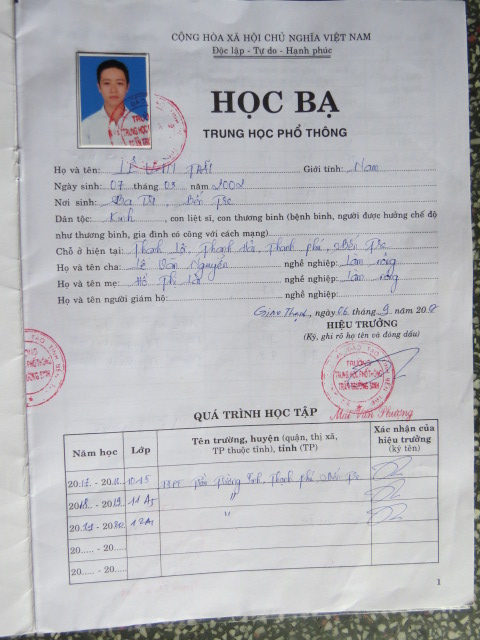 CỘNG HÒA XÃ HỘI CHỦ NGHĨA VIỆT NAM
Độc lập - Tự do - Hạnh phúc
HỌC BẠ
TRUNG HỌC PHỔ THÔNG
Họ và tên: LÊ Giới tính: Nam
Ngày sinh: 07 tháng 03 năm 2002
Nơi sinh: Bến Tre
Dân tộc: Kinh, con liệt sĩ, con thương binh (bệnh binh, người được hưởng chế độ
như thương binh, gia đình có công với cách mạng):
Chỗ ở hiện tại: Thạnh Hải, Thạnh phú, Bến Tre
Họ và tên cha: Lê Văn Nguyên nghề nghiệp: Làm nông
Họ và tên mẹ: Thị nghề nghiệp: Làm nông
Họ và tên người giám hộ: nghề nghiệp:
Giao Thạnh, ngày 06 tháng 9 năm 2018
HIỆU TRƯỞNG
(Ký, ghi rõ họ tên và đóng dấu)
TRƯỜNG
TRUNG HỌC PHỔ THÔNG
TRẦN TRƯỜNG SINH
Mai Văn Phương
QUÁ TRÌNH HỌC TẬP
Năm học Lớp Tên trường, huyện (quận, thị xã, TP thuộc tỉnh), tỉnh (TP) Xác nhận của hiệu trưởng (ký tên)
2017 - 2018 10A5 THPT Trần Trường Sinh, Thạnh phú, Bến Tre
2018 - 2019 11A5 "
2019 - 2020 12A "
20..... - 20.....
20..... - 20.....
1